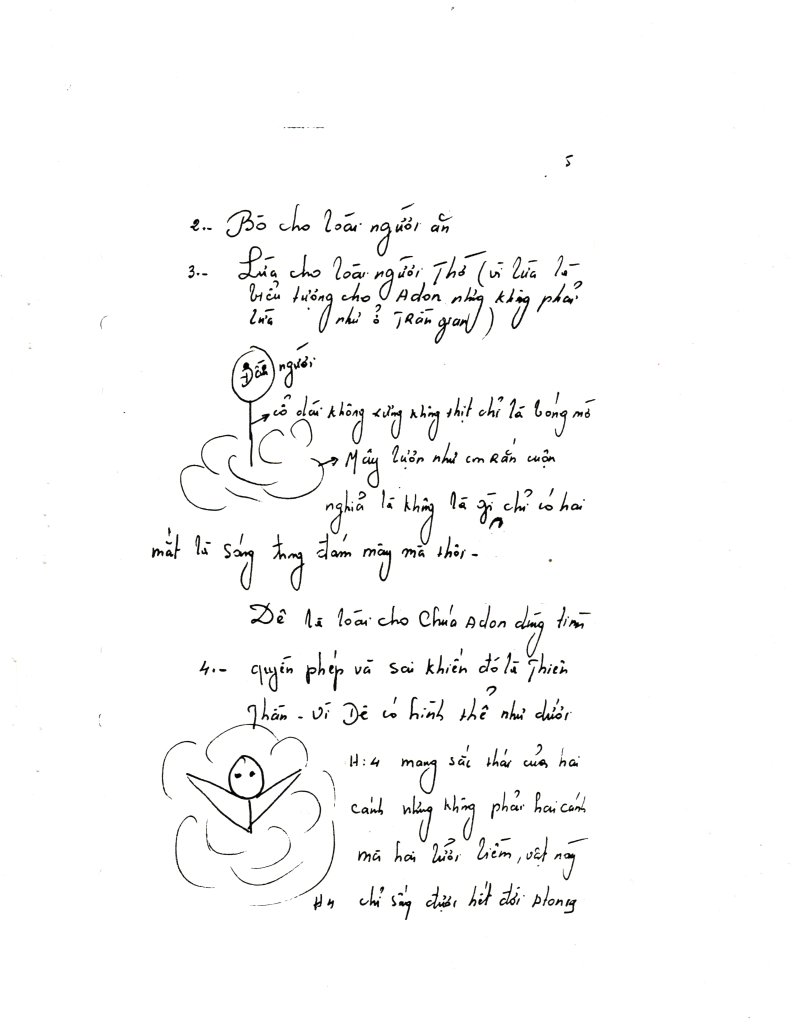 5
2.- Bò cho loài người ăn
3.- Lừa cho loài người Thờ (vì lừa là
biểu tượng cho Adon nhưng không phải
lừa như ở TRẦN gian)
Đầu người
cổ dài không xưng không thịt chỉ là bóng mờ
Mây lượn như con Rắn cuộn
nghiã là không là gì chỉ có hai
mắt là sáng trong đám mây mà thôi -
Dê là loài cho Chúa Adon dùng tìm
4.- quyền phép và sai khiến đó là Thiên
Thần - Vì Dê có hình thể như dưới
H:4 mang sắc thái của hai
cánh nhưng không phải hai cánh
mà hai lưỡi liềm, vật này
H4 chỉ sống được hết đời Along